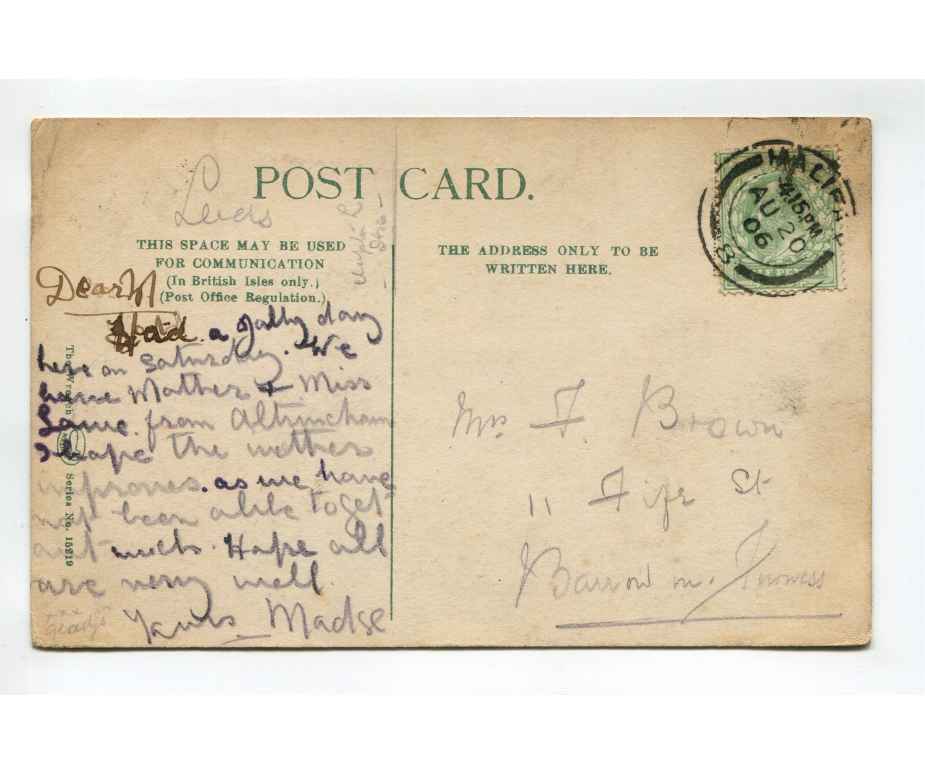 POST CARD.
THIS SPACE MAY BE USED
FOR COMMUNICATION
(In British Isles only.)
(Post Office Regulation.)
THE ADDRESS ONLY TO BE
WRITTEN HERE.
HALIFAX
4.15 PM
AU 20
06
Dear M
Had a Jolly day
here on Saturday. We
have Mother & Miss
from Altrincham
I hope the wether
improves. as we have
not been able to get
out much. Hope all
are very well.
Yours Madge
Gladys
Series No. 15219
Mrs F. Brown
11 Fife St
Barrow in Furness